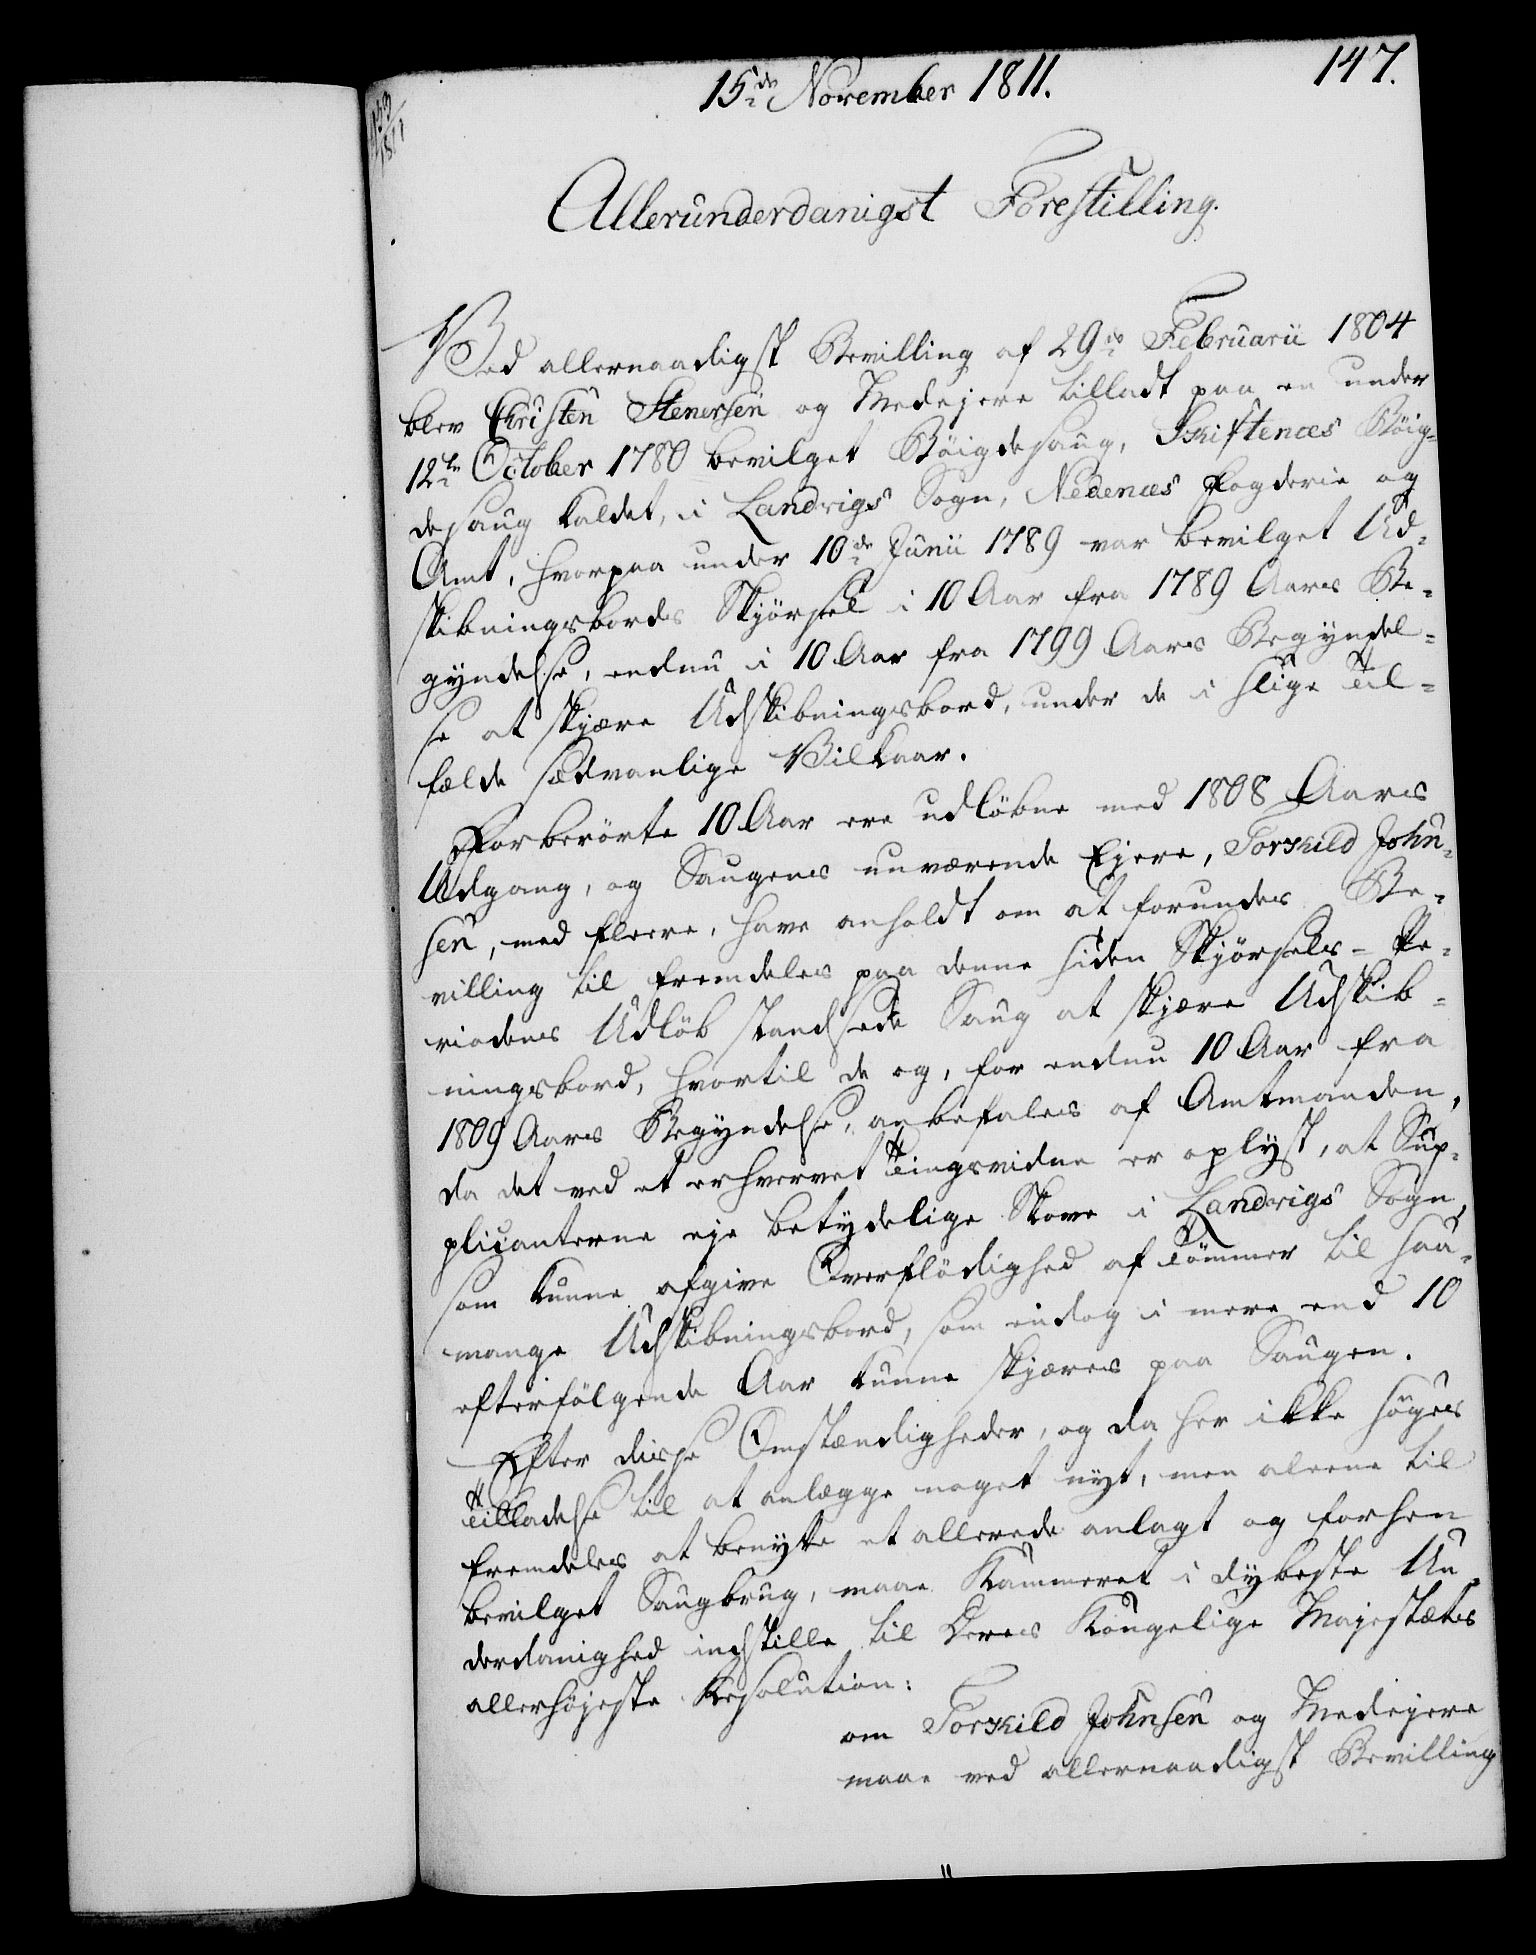 15de November 1811.
147.
1153
1811
Allerunderdanigst Forestilling.
Ved allernaadigst Bevilling af 29de Februarii 1804
blev Christen Stenersen og Medejere tilladt paa en under
12te October 1780 bevilget Böigdesaug, Skiftenæs Böig-
desaug kaldet, i Landvigs Sogn, Nedenæs Fogderie og
Amt, hvorpaa under 10de Junii 1789 var bevilget Ud-
skibningsbords Skjörsel i 10 Aar fra 1789 Aars Be-
gyndelse, endnu i 10 Aar fra 1799 Aars Begyndel-
se at skjære Udskibningsbord, under de i slige Til-
fælde sædvanlige Vilkaar.
Forberörte 10 Aar ere udlöbne med 1808 Aars
Udgang, og Saugens nuværende Ejere, Torkild John-
sen, med flere, have anholdt om at forundes Be-
villing til fremdeles paa denne siden Skjörsels-Pe-
riodens Udlöb standsede Saug at skjære Udskib-
ningsbord, hvortil de og, for endnu 10 Aar fra
1809 Aars Begyndelse, anbefales af Amtmanden,
da det ved et erhvervet Tingsvidne er oplyst, at Sup-
plicanterne eje betydelige Skove i Landvigs Sogn,
som kunne afgive Overflödighed af Tömmer til saa
mange Udskibningsbord, som endog i mere end 10
efterfölgende Aar kunne skjæres paa Saugen.
Efter disse Omstændigheder, og da her ikke söges
Tilladelse til at anlægge noget nyt, men alene til
fremdeles at benytte et allerede anlagt og forhen
bevilget Saugbrug, maae Kammeret i dybeste Un-
derdanighed indstille til Deres Kongelige Majestæts
allerhöjeste Resolution:
om Torkild Johnsen og Medejere
maae ved allernaadigst Bevilling